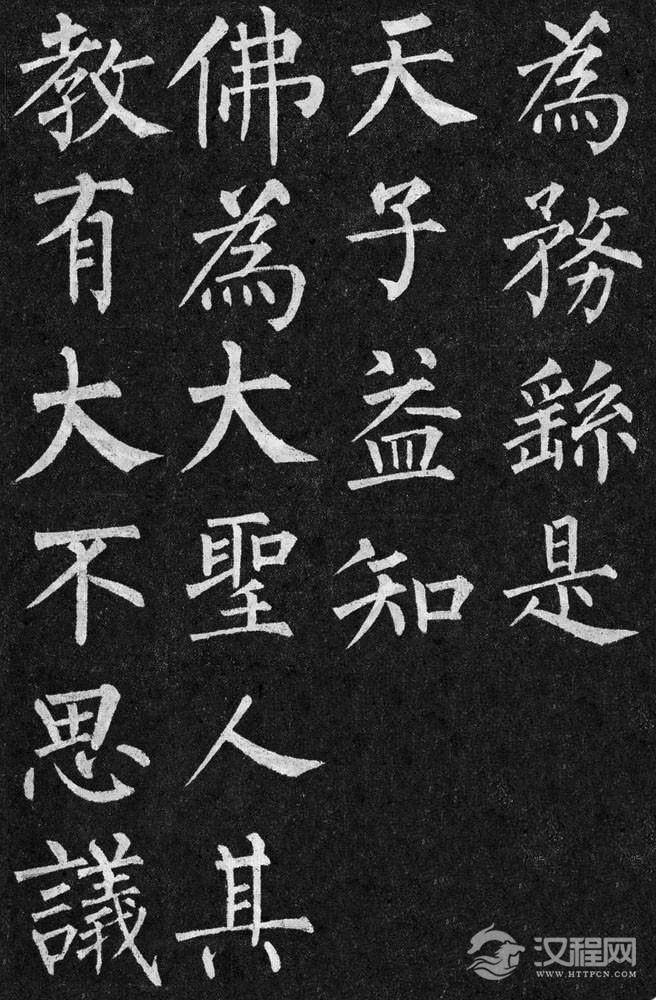 為務繇是
天子益知
佛為大聖人其
教有大不思議
汉程网
WWW.HTTPCN.COM